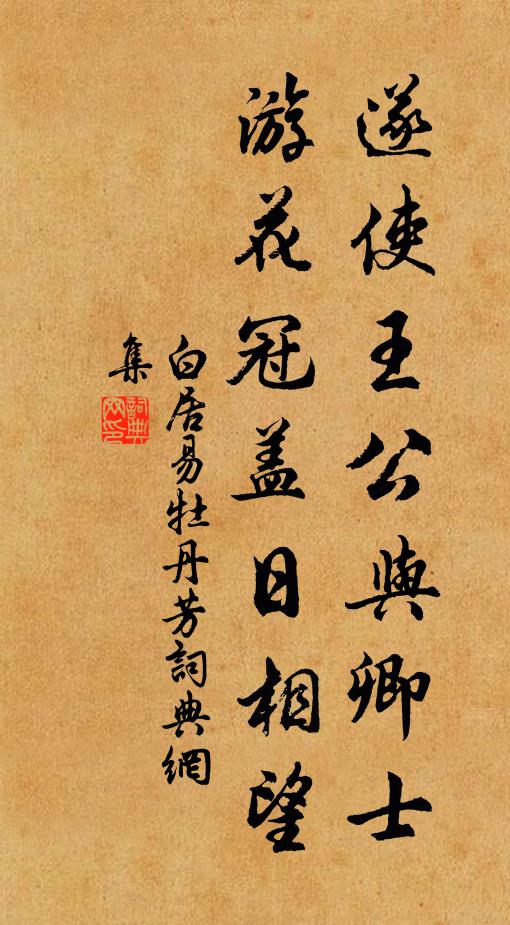 遂使王公與卿士
游花冠盖日相望
白居易牡丹芳詞典網
集
詞典
网印